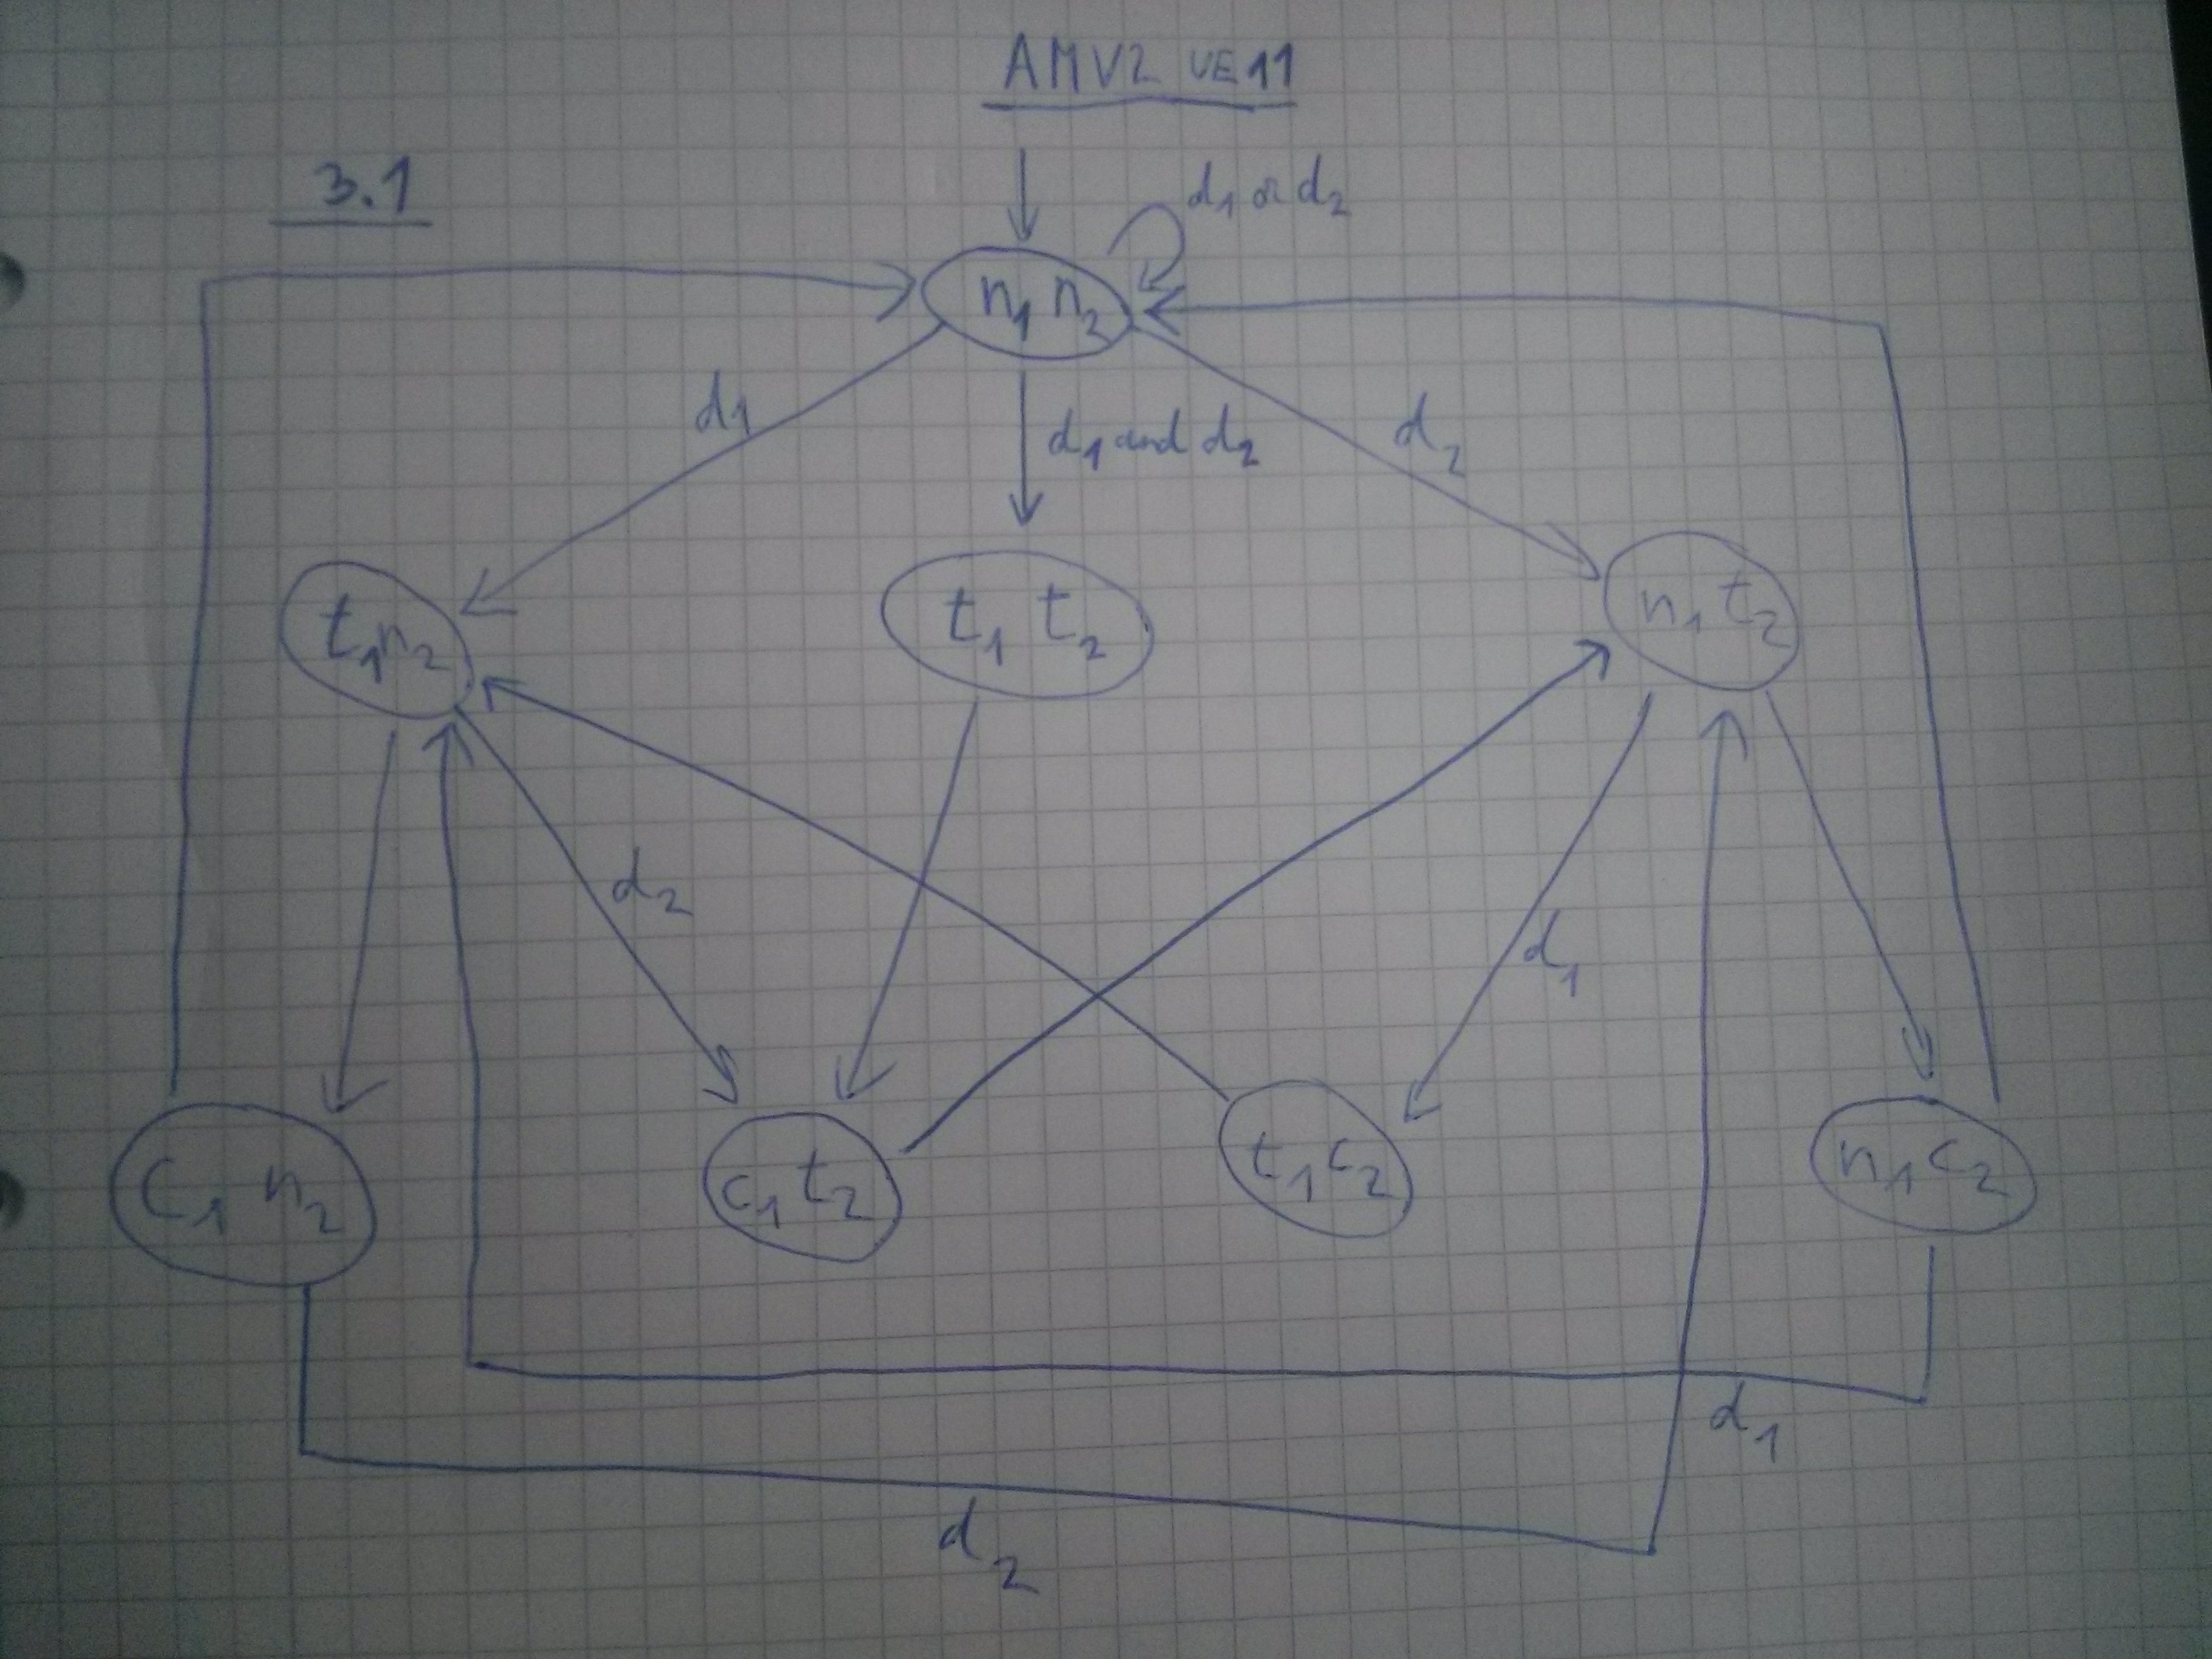 AMV2 UE11
3.1
d1 or d2
n1 n2
d1
d1 and d2
d2
t1n2
t1 t2
n1 t2
d2
d1
c1 n2
c1 t2
t1 c2
n1 c2
d1
d2